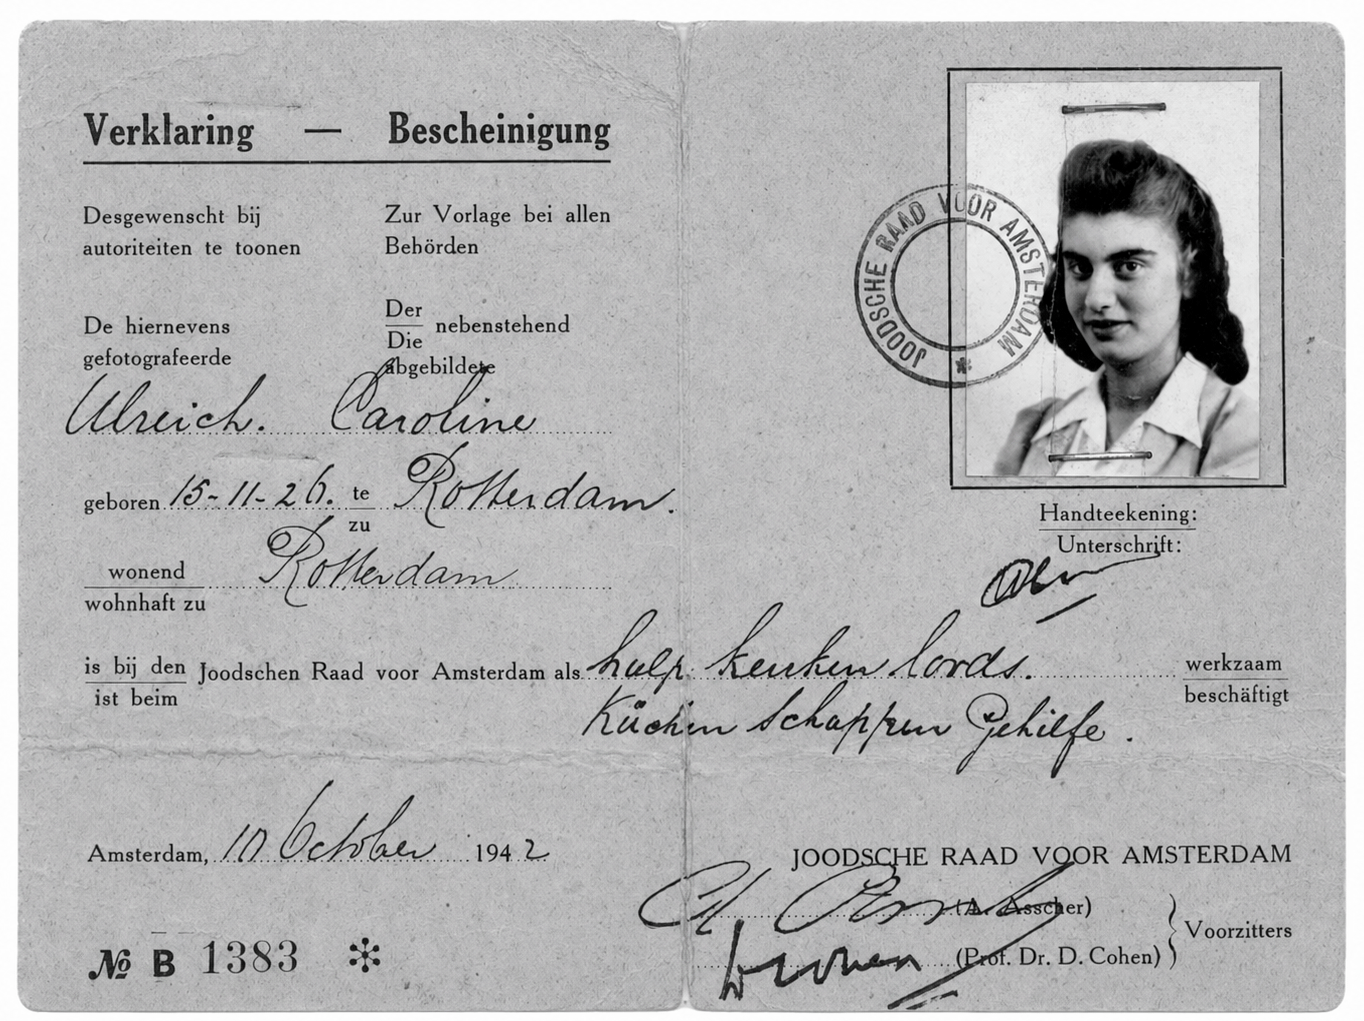 Verklaring — Bescheinigung
Desgewenscht bij
autoriteiten te toonen
Zur Vorlage bei allen
Behörden
De hiernevens
gefotografeerde
Der
Die
nebenstehend
abgebildete
Ulreich. Caroline
geboren 15-11-26. te Rotterdam.
zu
wonend Rotterdam
wohnhaft zu
is bij den Joodschen Raad voor Amsterdam als hulp keuken loods. werkzaam
ist beim Küchen Schuppen Gehilfe. beschäftigt
Amsterdam, 10 October 1942
№ B 1383 *
JOODSCHE RAAD VOOR AMSTERDAM *
Handteekening:
Unterschrift:
JOODSCHE RAAD VOOR AMSTERDAM
(A. Asscher)
(Prof. Dr. D. Cohen)
Voorzitters